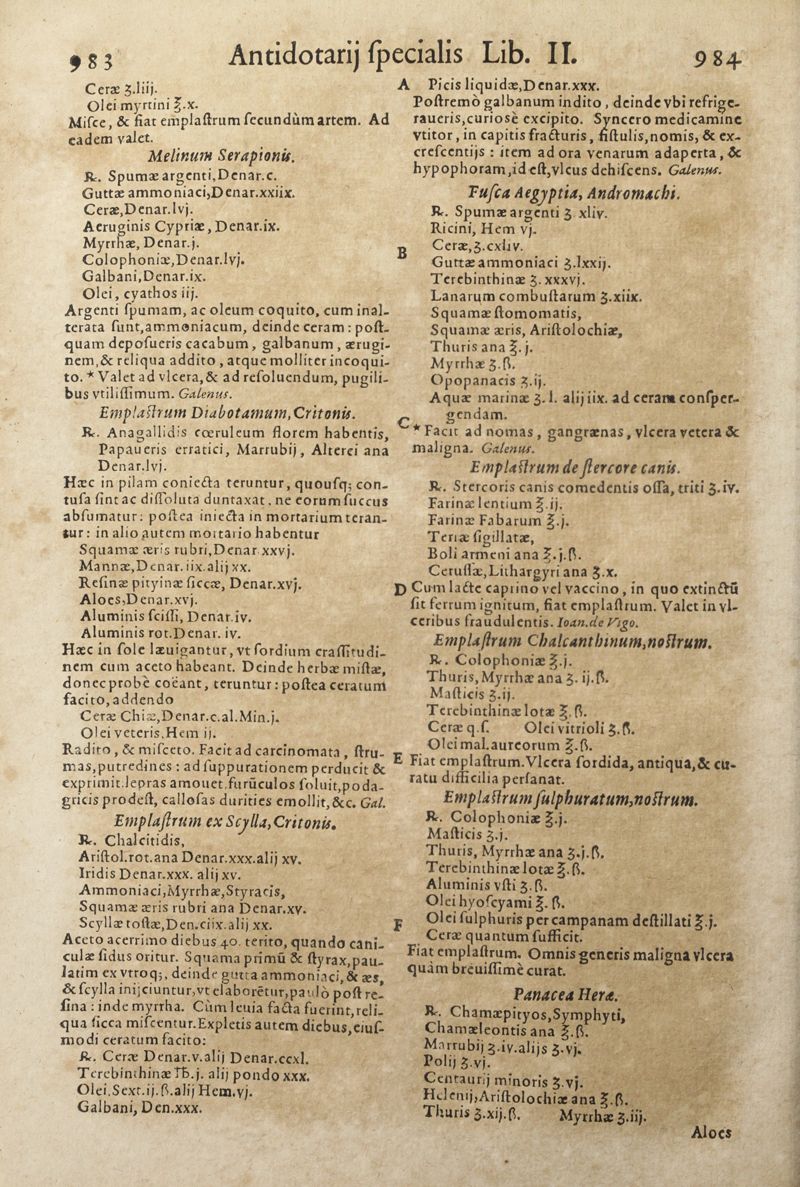 983 Antidotarij ſpecialis Lib. II. 984
Ceræ ʒ.liij.
Olei myrtini ℥.x.
Miſce, & fiat emplaſtrum ſecundùm artem. Ad
eadem valet.
Melinum Serapionis.
℞. Spumæ argenti, Denar.c.
Guttæ ammoniaci, Denar.xxiix.
Ceræ, Denar.lvj.
Aeruginis Cypriæ, Denar.ix.
Myrrhæ, Denar.j.
Colophoniæ, Denar.lvj.
Galbani, Denar.ix.
Olei, cyathos iij.
Argenti ſpumam, ac oleum coquito, cum inal-
terata ſunt, ammoniacum, deinde ceram: poſt-
quam depoſueris cacabum, galbanum, ærugi-
nem, & reliqua addito, atque molliter incoqui-
to. * Valet ad vlcera, & ad reſoluendum, pugili-
bus vtiliſſimum. Galenus.
Emplaſtrum Diabotamum, Critonis.
℞. Anagallidis cœruleum florem habentis,
Papaueris erratici, Marrubij, Alterci ana
Denar.lvj.
Hæc in pilam coniecta teruntur, quouſq; con-
tuſa ſint ac diſſoluta duntaxat. ne eorum ſuccus
abſumatur: poſtea iniecta in mortarium teran-
tur: in alio autem mortario habentur
Squamæ æris rubri, Denar xxvj.
Mannæ, Denar.iix.alij xx.
Reſinæ pityinæ ſiccæ, Denar.xvj.
Aloes, Denar.xvj.
Aluminis ſciſſi, Denar.iv.
Aluminis rot. Denar. iv.
Hæc in ſole læuigantur, vt ſordium craſſitudi-
nem cum aceto habeant. Deinde herbæ miſtæ,
donec probè coëant, teruntur: poſtea ceratum
facito, addendo
Ceræ Chiæ, Denar.c.al.Min.j.
Olei veteris, Hem ij.
Radito, & miſceto. Facit ad carcinomata, ſtru-
mas, putredines: ad ſuppurationem perducit &
exprimit. lepras amouet. furũculos ſoluit, poda-
gricis prodeſt, calloſas durities emollit, &c. Gal.
Emplaſtrum ex Scylla, Critonis.
℞. Chalcitidis,
Ariſtol.rot.ana Denar.xxx.alij xv.
Iridis Denar.xxx. alij xv.
Ammoniaci, Myrrhæ, Styracis,
Squamæ æris rubri ana Denar.xv.
Scyllæ toſtæ, Den.ciix.alij xx.
Aceto acerrimo diebus 40. terito, quando cani-
culæ ſidus oritur. Squama primũ & ſtyrax, pau-
latim ex vtroq;, deinde gutta ammoniaci, & æs,
& ſcylla inijciuntur, vt elaborẽtur, paulò poſt re-
ſina: inde myrrha. Cùm leuia facta fuerint, reli-
qua ſicca miſcentur. Expletis autem diebus, eiuſ-
modi ceratum facito:
℞. Ceræ Denar.v.alij Denar.ccxl.
Terebinthinæ ℔.j. alij pondo xxx.
Olei, Sext.ij.ß.alij Hem.vj.
Galbani, Den.xxx.
A Picis liquidæ, Denar.xxx.
Poſtremò galbanum indito, deinde vbi refrige-
raueris, curiosè excipito. Syncero medicamine
vtitor, in capitis fracturis, fiſtulis, nomis, & ex-
creſcentijs: item ad ora venarum adaperta, &
hypophoram, id eſt, vlcus dehiſcens. Galenus.
Fuſca Aegyptia, Andromachi.
℞. Spumæ argenti ʒ xliv.
Ricini, Hem vj.
B Ceræ, ʒ.cxliv.
Guttæ ammoniaci ʒ.lxxij.
Terebinthinæ ʒ.xxxvj.
Lanarum combuſtarum ʒ.xiix.
Squamæ ſtomomatis,
Squamæ æris, Ariſtolochiæ,
Thuris ana ℥.j.
Myrrhæ ʒ.ß.
Opopanacis ʒ.ij.
Aquæ marinæ ʒ.l. alij iix. ad ceram conſper-
C gendam.
* Facit ad nomas, gangrænas, vlcera vetera &
maligna. Galenus.
Emplaſtrum de ſtercore canis.
℞. Stercoris canis comedentis oſſa, triti ʒ.iv.
Farinæ lentium ℥.ij.
Farinæ Fabarum ℥.j.
Terræ ſigillatæ,
Boli armeni ana ℥.j.ß.
Ceruſſæ, Lithargyri ana ʒ.x.
D Cum lacte caprino vel vaccino, in quo extinctũ
ſit ferrum ignitum, fiat emplaſtrum. Valet in vl-
ceribus fraudulentis. Ioan.de Vigo.
Emplaſtrum Chalcanthinum, noſtrum.
℞. Colophoniæ ℥.j.
Thuris, Myrrhæ ana ʒ.ij.ß.
Maſticis ʒ.ij.
Terebinthinæ lotæ ℥.ß.
Ceræ q.ſ. Olei vitrioli ʒ.ß.
Olei mal.aureorum ℥.ß.
E Fiat emplaſtrum. Vlcera ſordida, antiqua, & cu-
ratu difficilia perſanat.
Emplaſtrum ſulphuratum, noſtrum.
℞. Colophoniæ ℥.j.
Maſticis ʒ.j.
Thuris, Myrrhæ ana ʒ.j.ß.
Terebinthinæ lotæ ℥.ß.
Aluminis vſti ʒ.ß.
Olei hyoſcyami ℥.ß.
F Olei ſulphuris per campanam deſtillati ℥.j.
Ceræ quantum ſufficit.
Fiat emplaſtrum. Omnis generis maligna vlcera
quàm breuiſſimè curat.
Panacea Heræ.
℞. Chamæpityos, Symphyti,
Chamæleontis ana ℥.ß.
Marrubij ʒ.iv.alijs ʒ.vj.
Polij ʒ.vj.
Centaurij minoris ʒ.vj.
Helenij, Ariſtolochiæ ana ℥.ß.
Thuris ʒ.xij.ß. Myrrhæ ʒ.iij.
Aloes